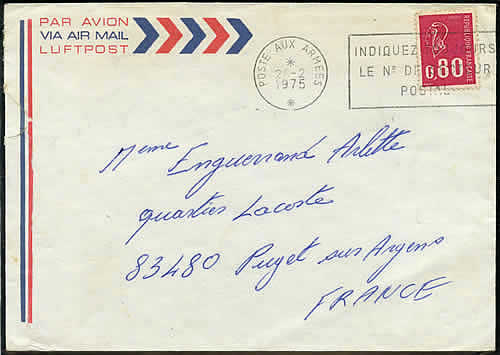 PAR AVION
VIA AIR MAIL
LUFTPOST
POSTE AUX ARMEES
1975
INDIQUEZ
LE No DE
POSTAL
0,80
REPUBLIQUE FRANCAISE
Meme Enguerrand Arlette
quartier Lacoste
83480 Puget sur Argens
FRANCE